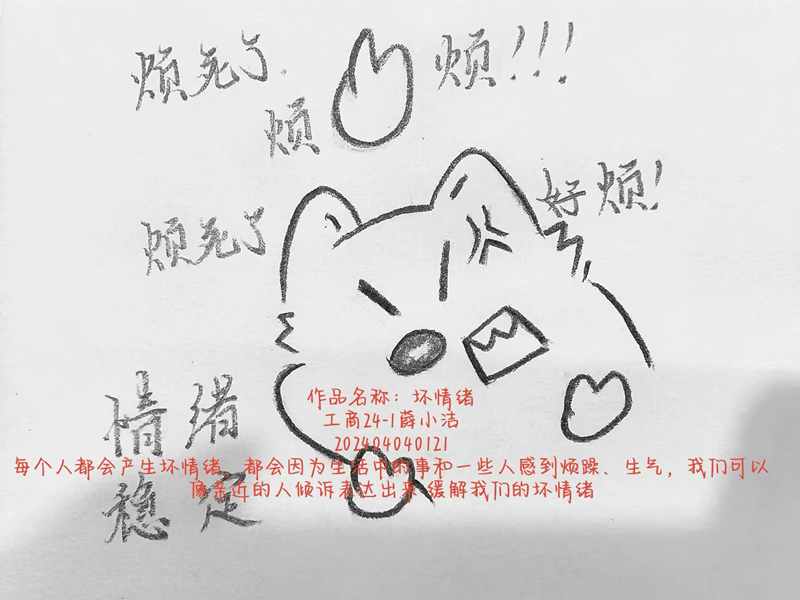 烦死了
烦！！！
烦
好烦！
烦死了
情绪
稳定
作品名称：坏情绪
工商24-1薛小洁
202404040121
每个人都会产生坏情绪，都会因为生活中的事和一些人感到烦躁、生气，我们可以
像亲近的人倾诉表达出来 缓解我们的坏情绪